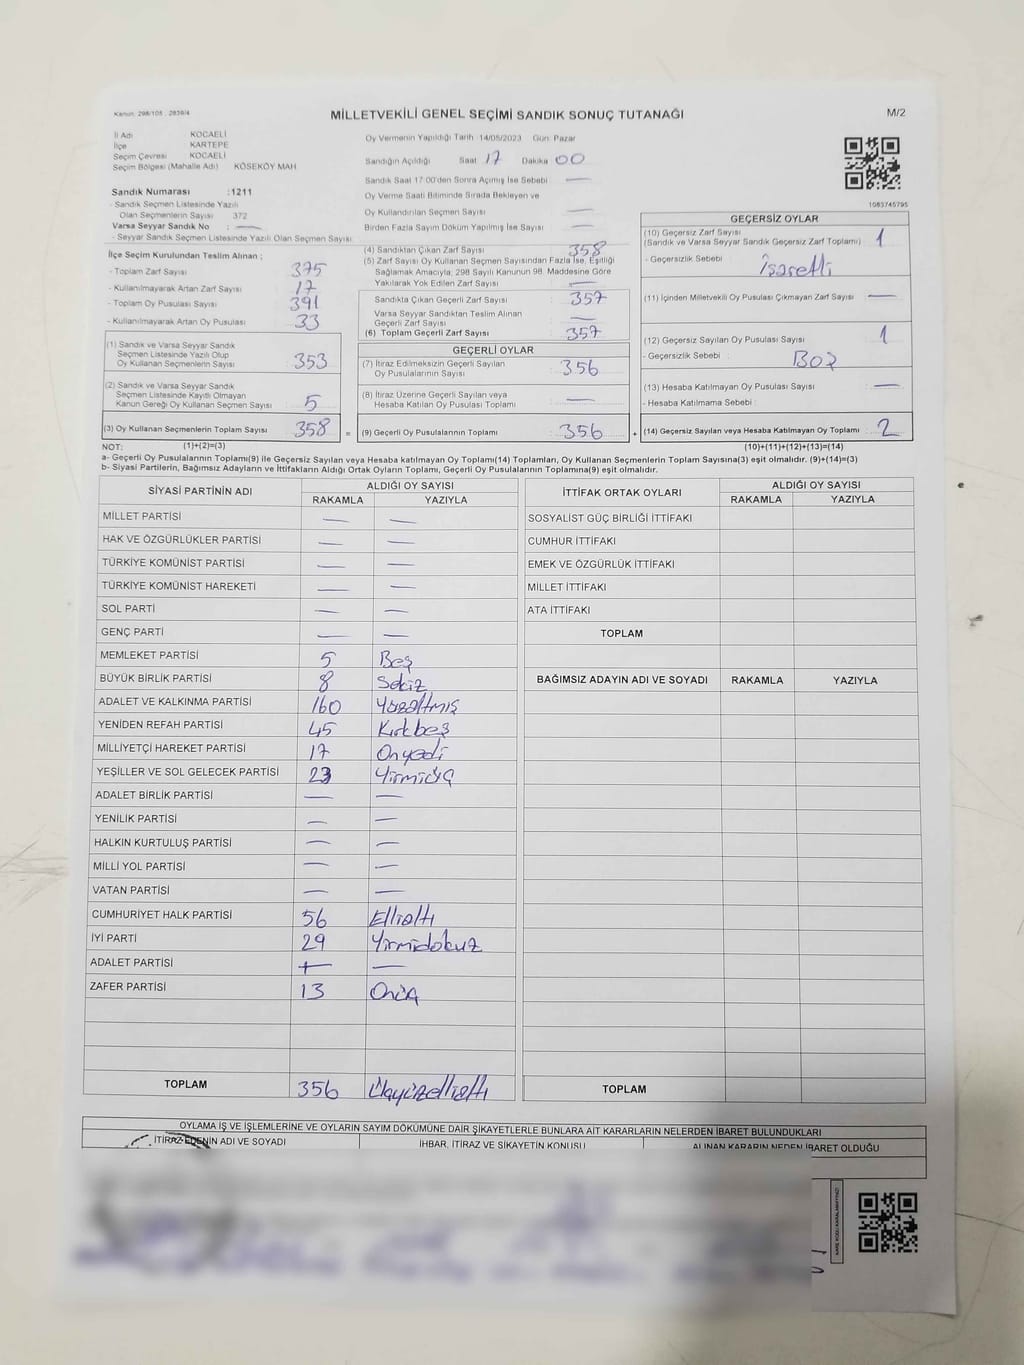 Kanun: 298/105 , 2839/4
MİLLETVEKİLİ GENEL SEÇİMİ SANDIK SONUÇ TUTANAĞI
M/2
İl Adı KOCAELİ
İlçe KARTEPE
Seçim Çevresi KOCAELİ
Seçim Bölgesi (Mahalle Adı) KÖSEKÖY MAH
Sandık Numarası :1211
- Sandık Seçmen Listesinde Yazılı
Olan Seçmenlerin Sayısı 372
Varsa Seyyar Sandık No : —
- Seyyar Sandık Seçmen Listesinde Yazılı Olan Seçmen Sayısı:
İlçe Seçim Kurulundan Teslim Alınan ;
- Toplam Zarf Sayısı 375
- Kullanılmayarak Artan Zarf Sayısı : 17
- Toplam Oy Pusulası Sayısı : 391
- Kullanılmayarak Artan Oy Pusulası : 33
(1) Sandık ve Varsa Seyyar Sandık
Seçmen Listesinde Yazılı Olup
Oy Kullanan Seçmenlerin Sayısı : 353
(2) Sandık ve Varsa Seyyar Sandık
Seçmen Listesinde Kayıtlı Olmayan
Kanun Gereği Oy Kullanan Seçmen Sayısı : 5
(3) Oy Kullanan Seçmenlerin Toplam Sayısı : 358 =
Oy Vermenin Yapıldığı Tarih 14/05/2023 Gün Pazar
Sandığın Açıldığı Saat 17 Dakika 00
Sandık Saat 17:00'den Sonra Açılmış İse Sebebi —
Oy Verme Saati Bitiminde Sırada Bekleyen ve
Oy Kullandırılan Seçmen Sayısı : —
Birden Fazla Sayım Döküm Yapılmış İse Sayısı : —
(4) Sandıktan Çıkan Zarf Sayısı : 358
(5) Zarf Sayısı Oy Kullanan Seçmen Sayısından Fazla İse, Eşitliği
Sağlamak Amacıyla, 298 Sayılı Kanunun 98. Maddesine Göre
Yakılarak Yok Edilen Zarf Sayısı : —
Sandıkta Çıkan Geçerli Zarf Sayısı : 357
Varsa Seyyar Sandıktan Teslim Alınan
Geçerli Zarf Sayısı : —
(6) Toplam Geçerli Zarf Sayısı : 357
GEÇERLİ OYLAR
(7) İtiraz Edilmeksizin Geçerli Sayılan
Oy Pusulalarının Sayısı : 356
(8) İtiraz Üzerine Geçerli Sayılan veya
Hesaba Katılan Oy Pusulası Toplamı : —
(9) Geçerli Oy Pusulalarının Toplamı : 356 +
1083745795
GEÇERSİZ OYLAR
(10) Geçersiz Zarf Sayısı
(Sandık ve Varsa Seyyar Sandık Geçersiz Zarf Toplamı) : 1
- Geçersizlik Sebebi : İşaretli
(11) İçinden Milletvekili Oy Pusulası Çıkmayan Zarf Sayısı : —
(12) Geçersiz Sayılan Oy Pusulası Sayısı : 1
- Geçersizlik Sebebi : Boş
(13) Hesaba Katılmayan Oy Pusulası Sayısı : —
- Hesaba Katılmama Sebebi :
(14) Geçersiz Sayılan veya Hesaba Katılmayan Oy Toplamı : 2
NOT: (1)+(2)=(3) (10)+(11)+(12)+(13)=(14)
a- Geçerli Oy Pusulalarının Toplamı(9) ile Geçersiz Sayılan veya Hesaba Katılmayan Oy Toplamı(14) Toplamları, Oy Kullanan Seçmenlerin Toplam Sayısına(3) eşit olmalıdır. (9)+(14)=(3)
b- Siyasi Partilerin, Bağımsız Adayların ve İttifakların Aldığı Ortak Oyların Toplamı, Geçerli Oy Pusulalarının Toplamına(9) eşit olmalıdır.
SİYASİ PARTİNİN ADI ALDIĞI OY SAYISI
RAKAMLA YAZIYLA
MİLLET PARTİSİ — —
HAK VE ÖZGÜRLÜKLER PARTİSİ — —
TÜRKİYE KOMÜNİST PARTİSİ — —
TÜRKİYE KOMÜNİST HAREKETİ — —
SOL PARTİ — —
GENÇ PARTİ — —
MEMLEKET PARTİSİ 5 Beş
BÜYÜK BİRLİK PARTİSİ 8 Sekiz
ADALET VE KALKINMA PARTİSİ 160 Yüzaltmış
YENİDEN REFAH PARTİSİ 45 Kırkbeş
MİLLİYETÇİ HAREKET PARTİSİ 17 Onyedi
YEŞİLLER VE SOL GELECEK PARTİSİ 23 Yirmiüç
ADALET BİRLİK PARTİSİ — —
YENİLİK PARTİSİ — —
HALKIN KURTULUŞ PARTİSİ — —
MİLLİ YOL PARTİSİ — —
VATAN PARTİSİ — —
CUMHURİYET HALK PARTİSİ 56 Ellialtı
İYİ PARTİ 29 Yirmidokuz
ADALET PARTİSİ — —
ZAFER PARTİSİ 13 Onüç
TOPLAM 356 Üçyüzellialtı
İTTİFAK ORTAK OYLARI ALDIĞI OY SAYISI
RAKAMLA YAZIYLA
SOSYALİST GÜÇ BİRLİĞİ İTTİFAKI
CUMHUR İTTİFAKI
EMEK VE ÖZGÜRLÜK İTTİFAKI
MİLLET İTTİFAKI
ATA İTTİFAKI
TOPLAM
BAĞIMSIZ ADAYIN ADI VE SOYADI RAKAMLA YAZIYLA
TOPLAM
OYLAMA İŞ VE İŞLEMLERİNE VE OYLARIN SAYIM DÖKÜMÜNE DAİR ŞİKAYETLERLE BUNLARA AİT KARARLARIN NELERDEN İBARET BULUNDUKLARI
İTİRAZ EDENİN ADI VE SOYADI İHBAR, İTİRAZ VE ŞİKAYETİN KONUSU ALINAN KARARIN NEDEN İBARET OLDUĞU
KARE KODU KARALAMAYINIZ!